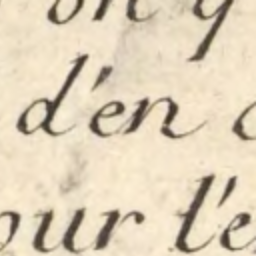 on q
d'en
our l'e